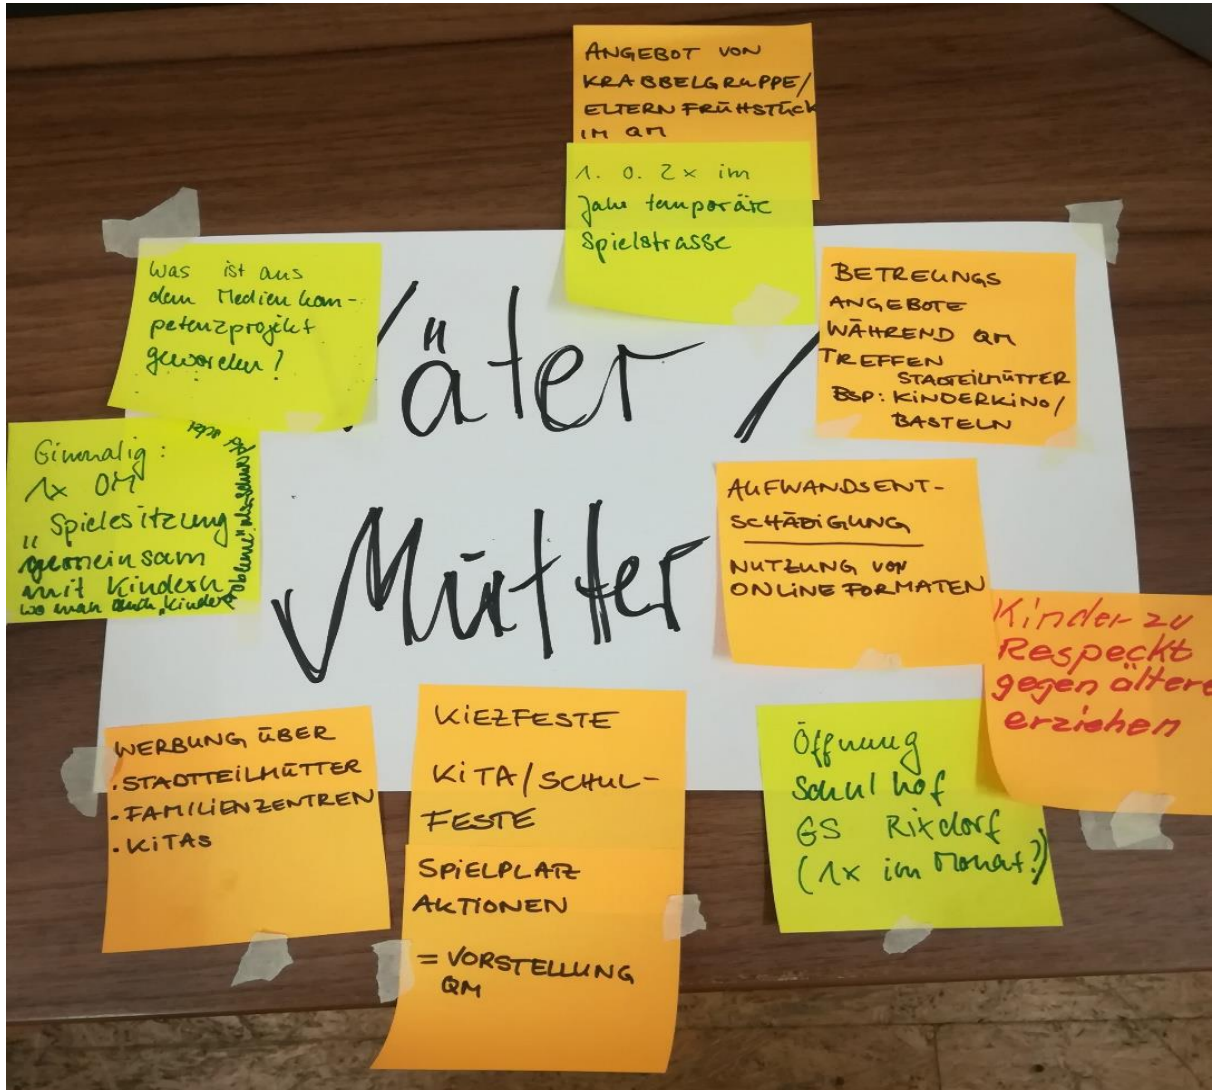 ANGEBOT VON
KRABBELGRUPPE/
ELTERNFRÜHSTÜCK
IM QM
1. o. 2x im
Jahr temporäre
Spielstrasse
Was ist aus
dem Medienkom-
petenzprojekt
geworden?
Väter /
Mütter
BETREUNGS
ANGEBOTE
WÄHREND QM
TREFFEN
STADTEILMÜTTER
BSP: KINDERKINO/
BASTELN
Einmalig:
1x QM
"Spielesitzung
gemeinsam
mit Kindern
wo man auch "Kinder
AUFWANDSENT-
SCHÄDIGUNG
NUTZUNG VON
ONLINE FORMATEN
Kinder zu
Respeckt
gegen ältere
erziehen
WERBUNG ÜBER
· STADTTEILMÜTTER
· FAMILIENZENTREN
· KITAS
KIEZFESTE
KITA/SCHUL-
FESTE
SPIELPLATZ
AKTIONEN
= VORSTELLUNG
QM
Öffnung
Schulhof
GS Rixdorf
(1x im Monat?)